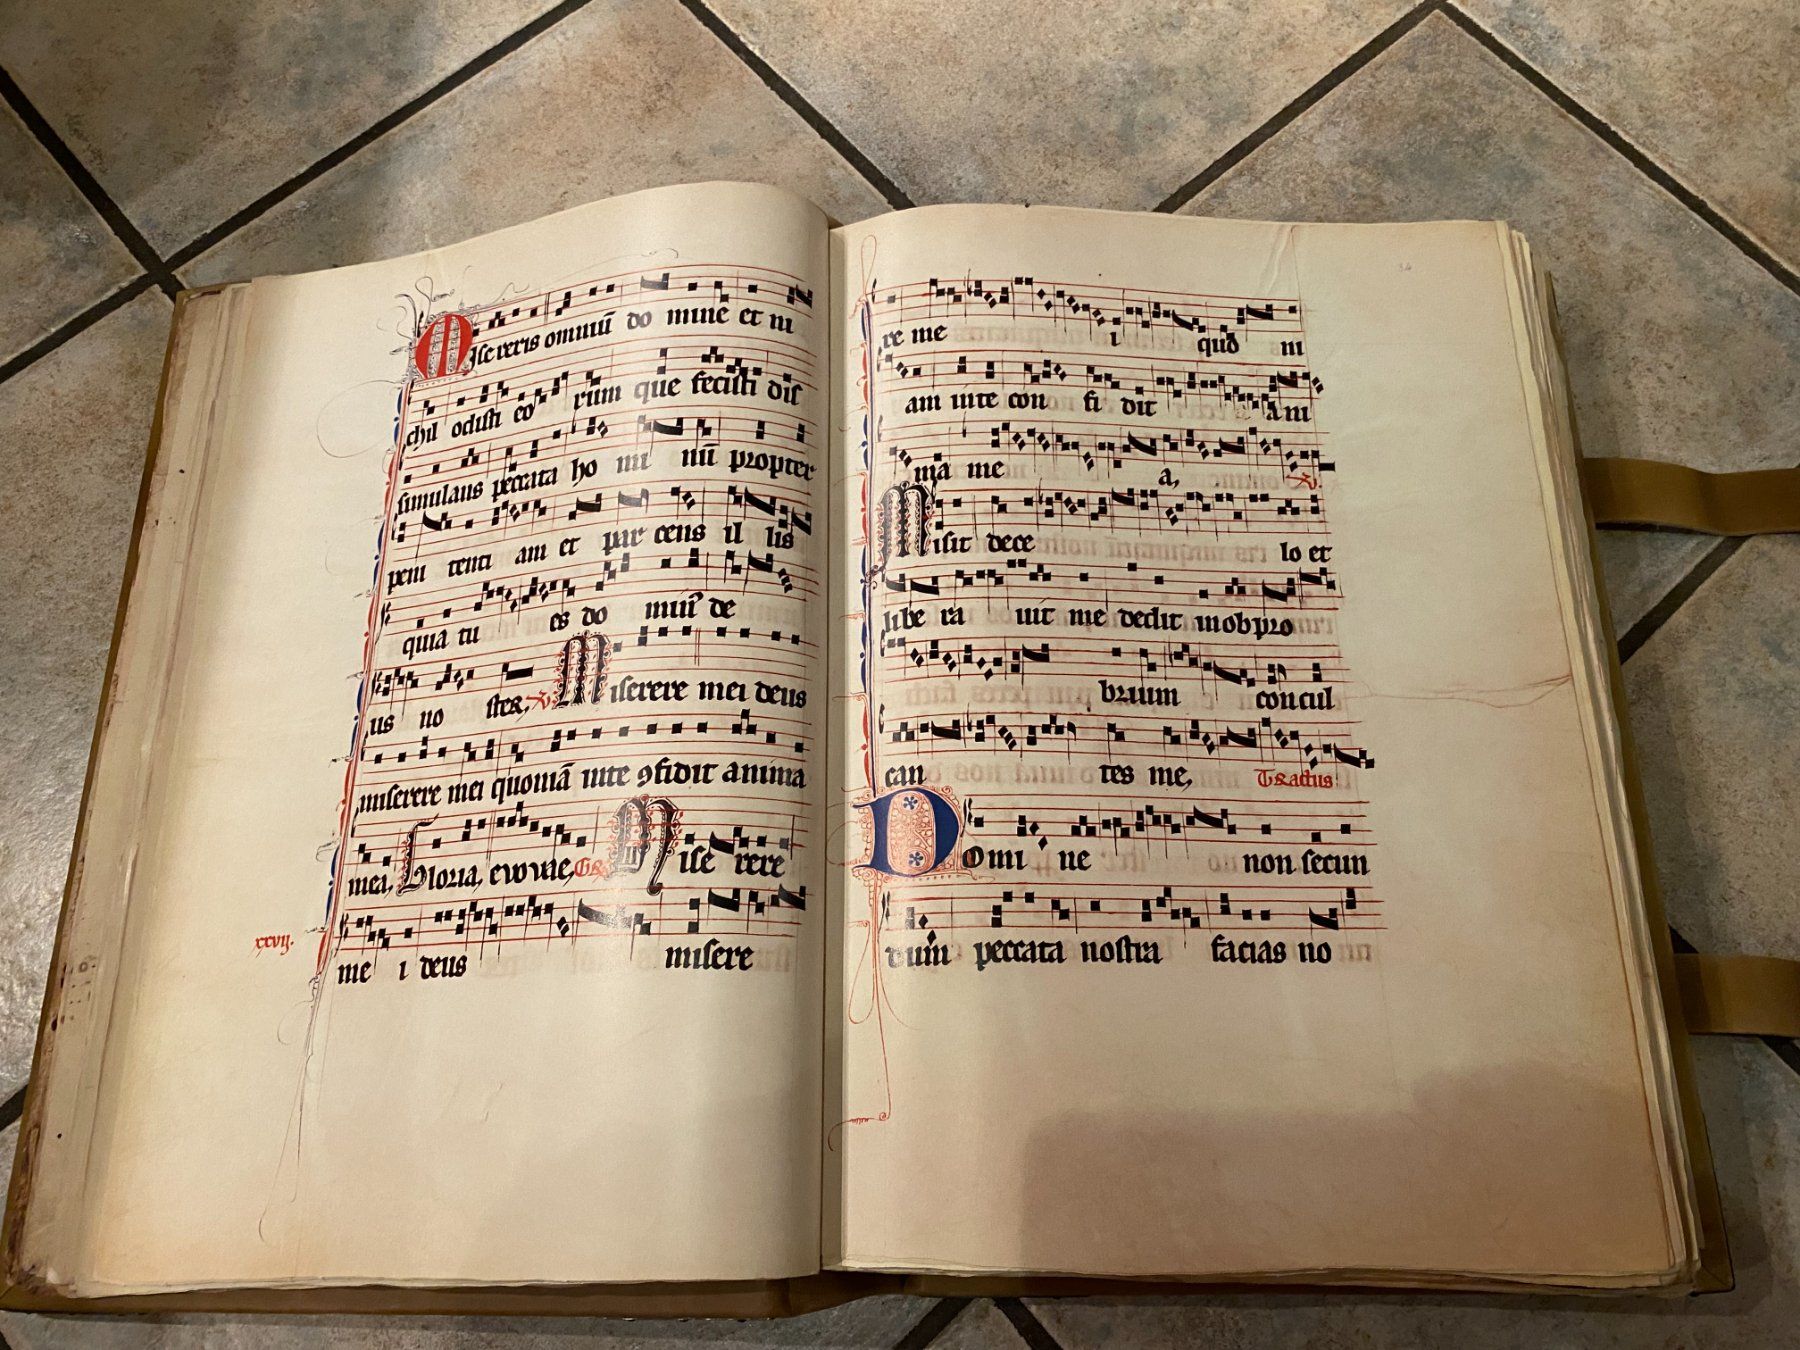 Misereris omniū do mine et ni
chil odisti eo rum que fecisti dis
simulans peccata ho mi nū propter
peni tenti am et par cens il lis
quia tu es do min⁹ de
us no ster, V. Miserere mei deus
miserere mei quoniā inte ꝯfidit anima
mea, Gloria, evovae, Gr Mise rere
xxvij.
me i deus misere
34
re me i quō ni
am inte con fi dit ani
ma me a, V.
Misit dece lo et
libe ra uit me dedit inobpro
brium concul
can tes me, Tractus
Domi ne non secun
dum peccata nostra facias no